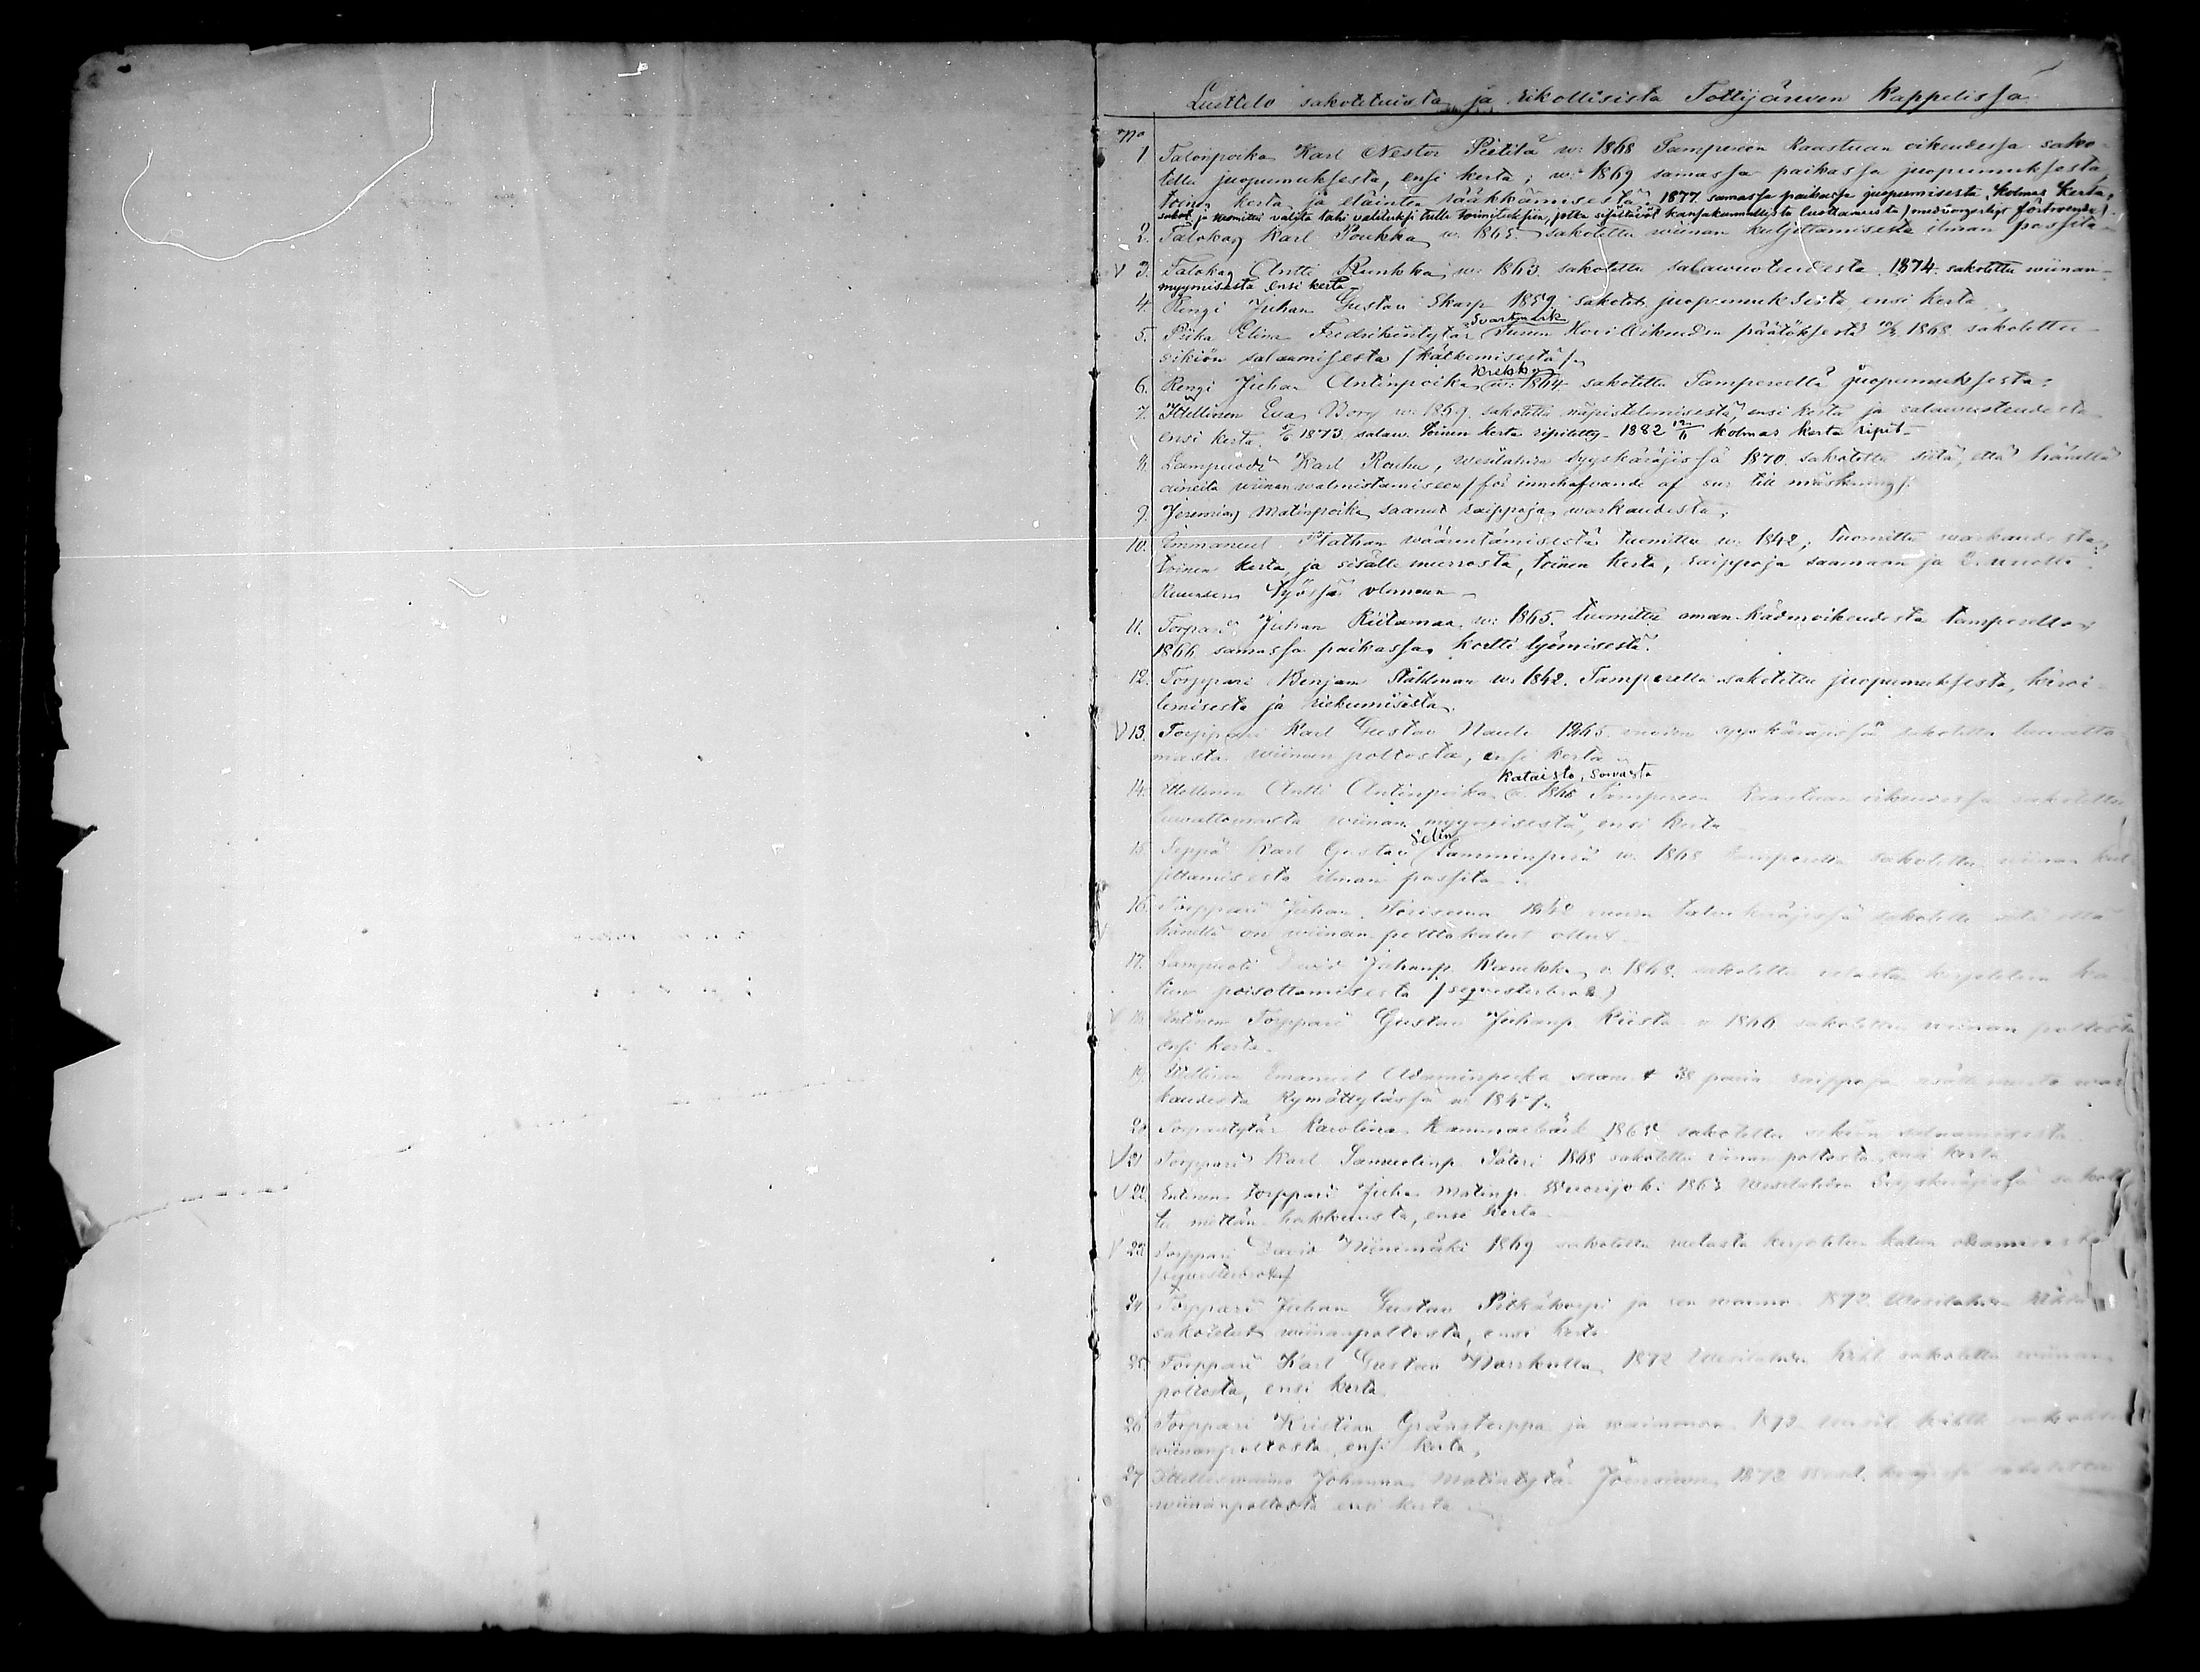 Luettelo sakotetuista ja rikollisista Tottijärwen Kappelissa
No
1. Talonpoika Karl Nestor Pietilä w: 1868 Tampereen Raastuan oikeudessa sako-
tettu juopumuksesta, ensi kerta; w: 1869 samassa paikassa juopumuksesta,
toinen kerta ja eläinten rääkkämisestä. 1877 samassa paikassa juopumisesta kolmas kerta,
sakot. ja tuomittu valita tahi valituksi tulla toimituksiin, jotka sisältävät kansakunnallista luottamusta / medborgerligt förtroende /.
2. Talokas Karl Poukka w. 1865. sakotettu wiinan kuljettamisesta ilman passita
V 3. Talokas Antti Runkka w: 1863. sakotettu salawuoteudesta. 1874. sakotettu wiinan-
myymisestä ensi kerta
4. Rengi Juhan Gustav Skarp 1859. sakotet. juopumuksesta, ensi kerta
5. Piika Elina Fredrikintytär Svartsmark Turun Hovi Oikeuden päätöksestä 1868 sakotettu
sikiön salaamisesta / kätkemisestä /.
6. Rengi Juhan Antinpoika Krekko w: 1864 sakotettu Tampereella juopumuksesta.
7. Itellinen Eva Borg w: 1869. sakotettu näpistelemisestä, ensi kerta ja salawuoteudesta
ensi kerta. 1873 salaw. toinen kerta ripitetty. 1882 12/11 kolmas kerta ripit.
8. Lampuodi Karl Rauhu, Wesilahden syyskäräjissä 1870. sakotettu siitä, että hänellä
aineita wiinan walmistamiseen / för innehafvande af till mäskning /.
9. Jeremias Matinpoika saanut raippoja warkaudesta.
10. Emmanuel Flathan wäärentämisestä tuomittu w: 1842; tuomittu warkaudesta,
toinen kerta, ja sisälle murrosta, toinen kerta, raippoja saamaan ja 2 wuotta
Kruunun työssä olemaan
11. Torpari Juhan Riitamaa w: 1865. tuomittu oman kädenoikeudesta tampereella;
1866 samassa paikassa kortti lyömisestä.
12. Torppari Benjam Ståhlman w. 1842. Tamperella sakotettu juopumuksesta, kiroi-
lemisesta ja riekumisesta.
V 13. Torppari Karl Gustav Naule 1865. vuoden syyskäräjissä sakotettu luwatto-
masta wiinan poltosta, ensi kerta
14. Itellinen Antti Antinpoika Kataisto, Sawasta w. 1868 Tampereen Raastuan oikeudessa sakotettu
luwattomasta wiinan myymisestä, ensi kerta
15. Seppä Karl Gustav Selin Lamminperä w. 1868 Tamperella sakotettu wiinan kul-
jettamisesta ilman passita.
16. Torppari Juhan talwikäräjissä sakotettu siitä että
hänellä on wiinan polttokalut ollut.
17. Lampuoti David Juhanp. Kaukka w. 1868. sakotettu velasta kirjoitetun ka-
lun poisottamisesta
V 18. Entinen Torppari Gustav Juhanp. Riista w 1866 sakotettu wiinan poltosta
ensi kerta.
19. Itellinen Emanuel Adaminpoika saanut 38 paria raippoja war-
kaudesta Kymättylässä
20. Torparintytär Karolina 1868 sakotettu sikiön salaamisesta
V 21. Torppari Karl Samuelinp. Säteri 1868 sakotettu wiinan poltosta, ensi kerta
V 22. Entinen torppari Juha Matinp. Wuorijoki 1863 Wesilahden Syyskäräjissä sakotet-
tu mettän hakkuusta, ensi kerta
V 23. Torppari David Niinimäki 1869 sakotettu welasta kirjoitetun kalun
24. Torppari Juhan Gustav Pitkäkorpi ja sen waimo 1872 Wesilahden
sakotetut wiinanpoltosta, ensi kerta
25. Torppari Karl Gustav Warrkulla 1872 Wesilahden sakotettu wiinan
poltosta, ensi kerta.
26. Torppari Kristian Gränstorppa ja waimonsa 1872 sakotettu
wiinanpoltosta, ensi kerta,
27. Johanna Matintytär 1872 sakotettu
wiinanpoltosta ensi kerta